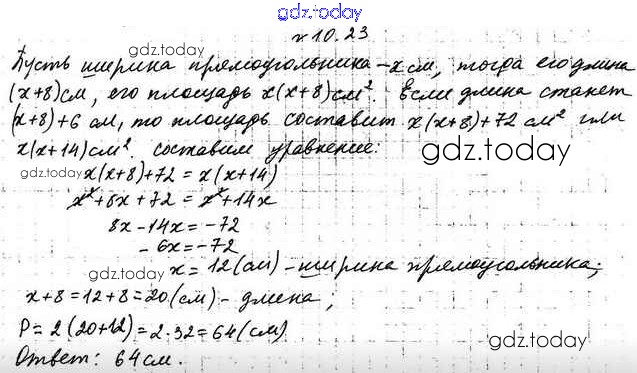 gdz.today
№ 10.23
gdz.today
Пусть ширина прямоугольника – x см, тогда его длина
(x+8) см, его площадь x(x+8) см². Если длина станет
(x+8)+6 см, то площадь составит x(x+8)+72 см² или
x(x+14) см². составим уравнение:
gdz.today
gdz.today
x(x+8)+72 = x(x+14)
x²+8x+72 = x²+14x
8x-14x=-72
-6x=-72
gdz.today
x=12(см) – ширина прямоугольника;
x+8=12+8=20(см) – длина;
P=2(20+12)=2·32=64(см)
gdz.today
Ответ: 64 см.